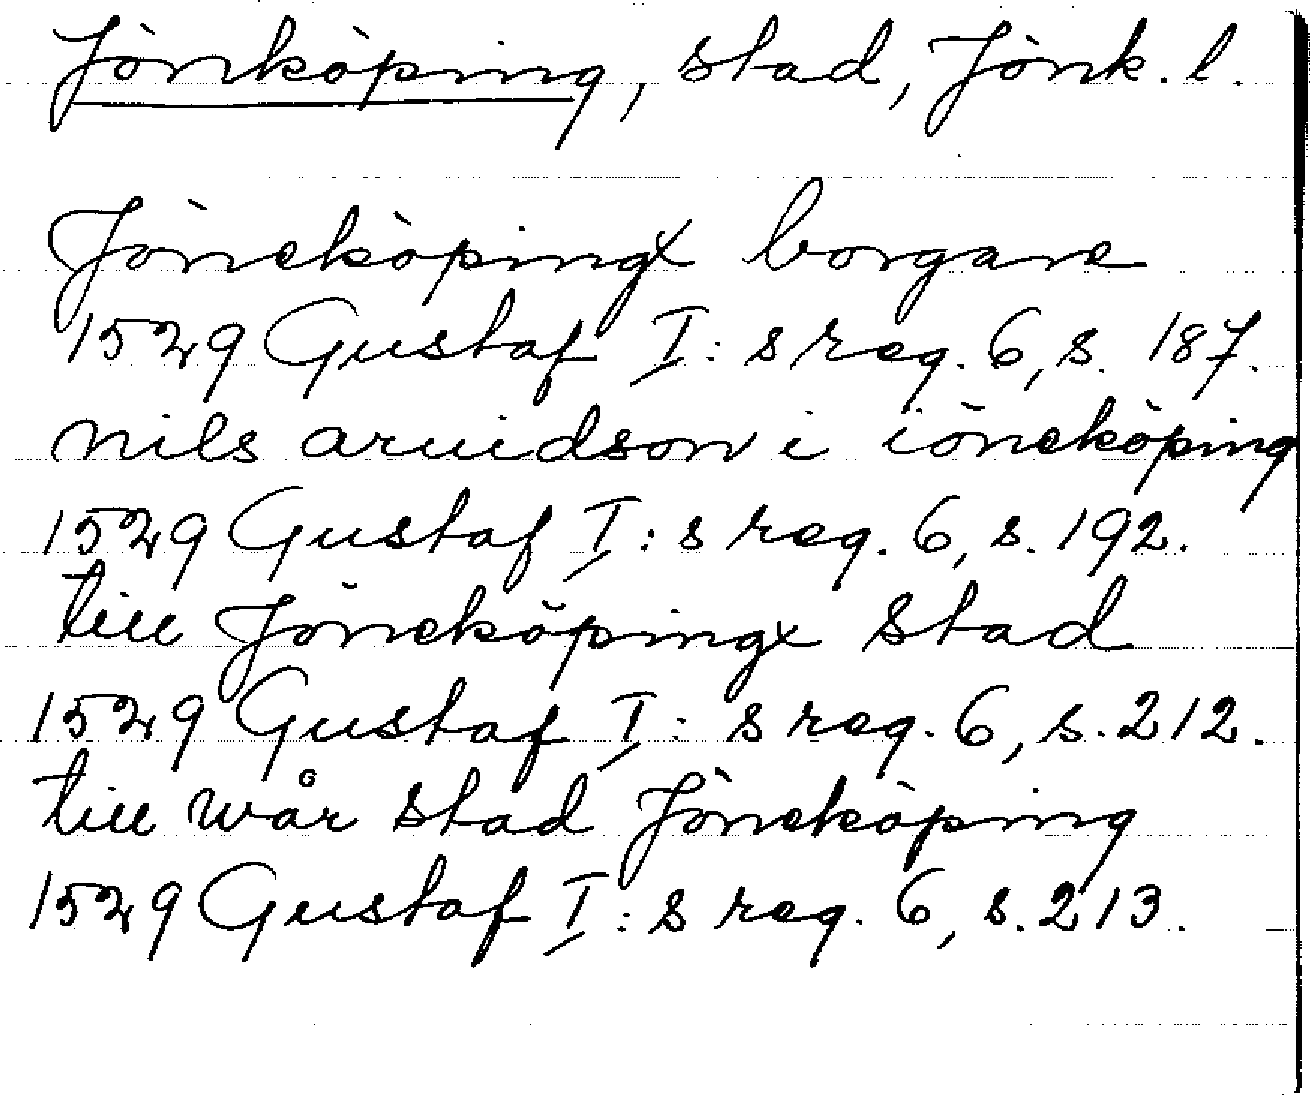 Jönköping, stad, Jönk. l.
Jöneköpingx borgare
1529 Gustaf I: s reg. 6, s. 187.
nils aruidson i iöneköping
1529 Gustaf I: s reg. 6, s. 192.
till Jöneköpingx stad
1529 Gustaf I: s reg. 6, s. 212.
till wår stad Jöneköping
1529 Gustaf I: s reg. 6, s. 213.